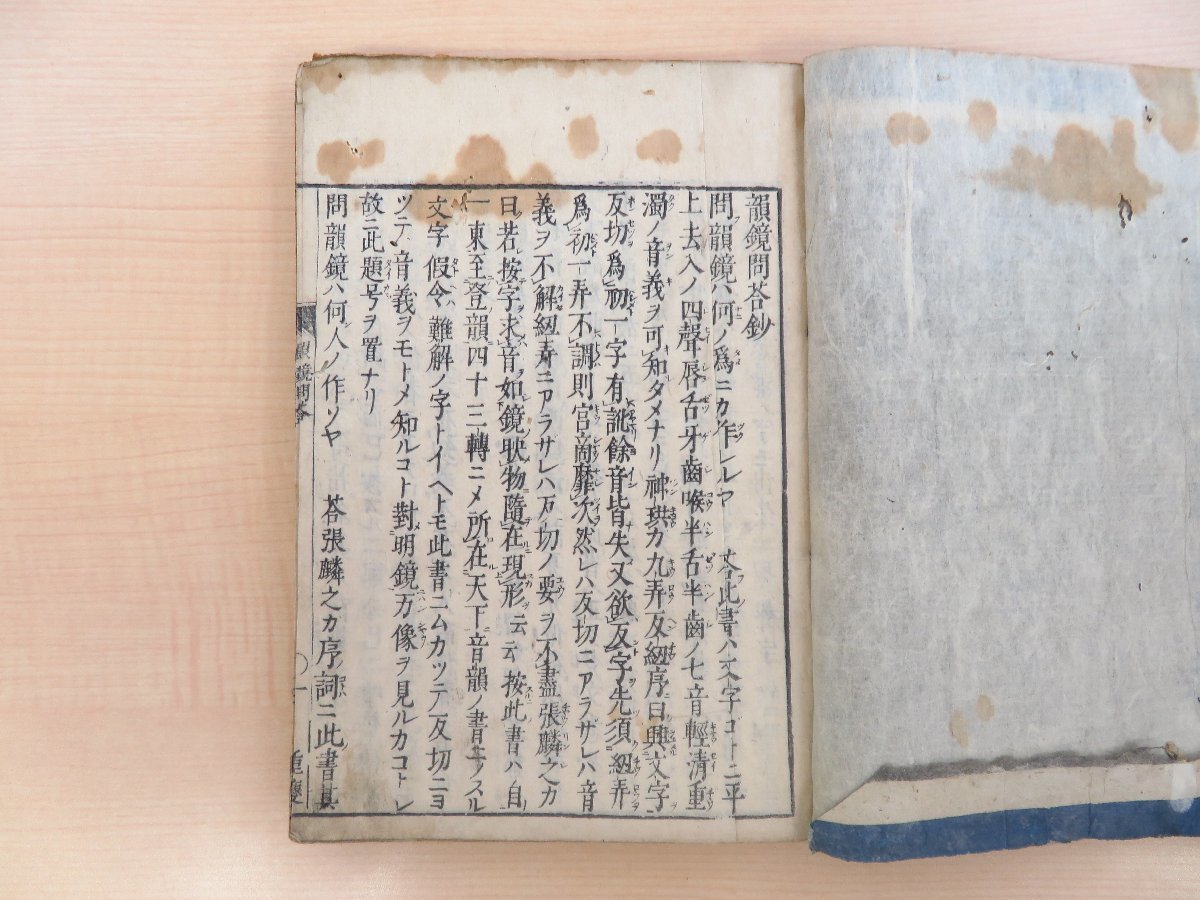 韻鏡問荅鈔
問韻鏡ハ何ノ爲ニカ作レルヤ 荅此書ハ文字ゴトニ平
上去入ノ四聲唇舌牙齒喉半舌半齒ノ七音輕清重
濁ノ音義ヲ可知タメナリ神珙カ九弄反紐序曰興文字
反切爲初一字有訛餘音皆失又欲反字先須紐弄
爲初一弄不調則宮商靡次然レハ反切ニアラザレハ音
義ヲ不解紐弄ニアラサレハ反切ノ要ヲ不盡張麟之カ
曰若按字求音如鏡映物隨在現形云云按此書ハ自
一東至登韻四十三轉ニメ所在天下音韻ノ書ヲスル
文字假令難解ノ字トイヘトモ此書ニムカツテ反切ニヨ
ツテ音義ヲモトメ知ルコト對明鏡万像ヲ見ルカコトレ
故ニ此題号ヲ置ナリ
問韻鏡ハ何人ノ作ソヤ 荅張麟之カ序詞ニ此書其
韻鏡問荅 一